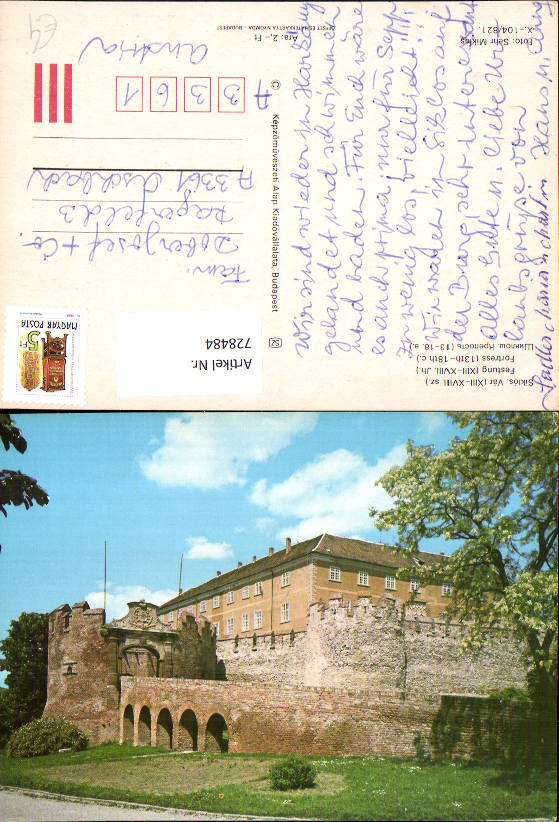 Siklós. Vár (XIII–XVIII. sz.)
Festung (XIII–XVIII. Jh.)
Fortress (13th–18th c.)
Шиклош. Крепость (13–18. в.)
Wir sind wieder in Harkány
gelandet und schwimmen
und baden. Für Euch wäre
es auch prima nur für Sepp
zu wenig los, vielleicht!!!!
Wir waren in Siklos auf
der Burg, sehr interessant
alles Gute u. liebe
von
Hans u.
52
© Képzőművészeti Alap Kiadóvállalata, Budapest
Foto: Sehr Miklós
X.–104/821.
Ára: 2,– Ft
OFFSET ÉS JÁTÉKKÁRTYA NYOMDA – BUDAPEST
MAGYAR POSTA
5 Ft
Artikel Nr.
728484
Fam.
Josef + Co
3
A 3361 Aschbach
A 3361
Austria